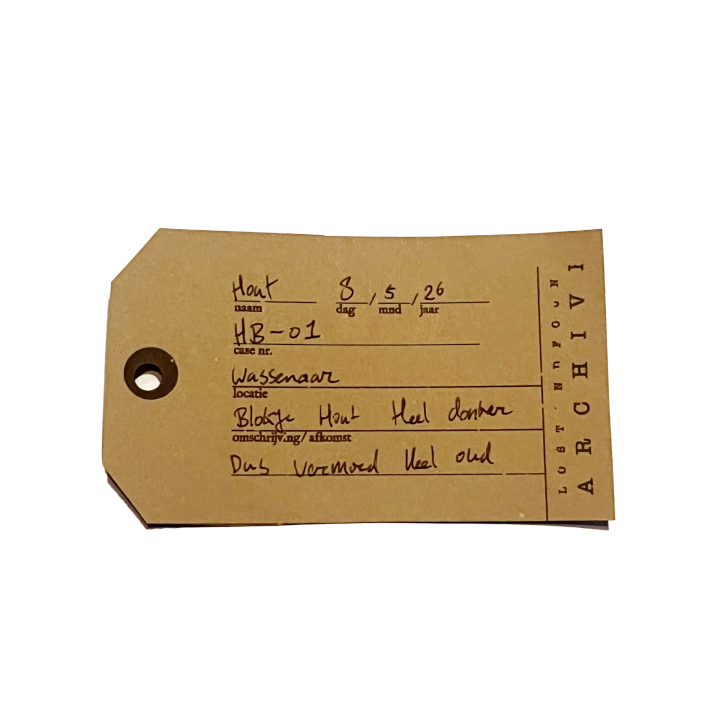 Hout 8 / 5 / 26
naam dag mnd jaar
HB-01
case nr.
Wassenaar
locatie
Blokje Hout Heel donker
omschrijving/ afkomst
Dus vermoed Heel oud
LOST NDFOUN
ARCHIVI